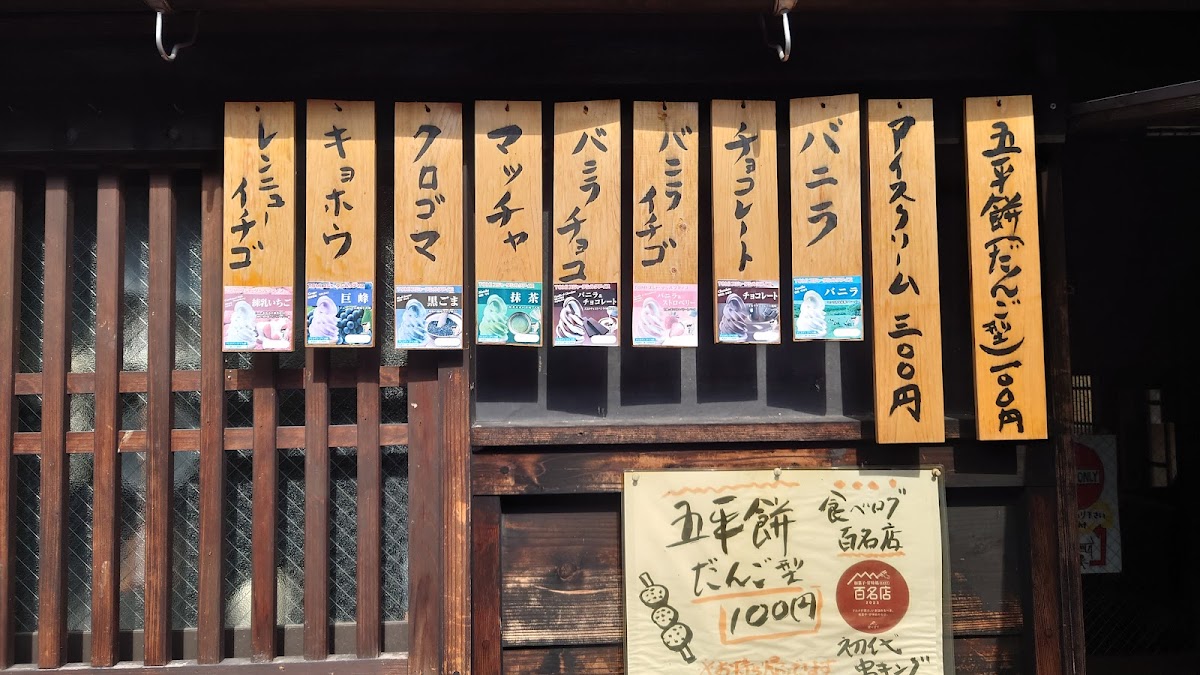 五平餅(だんご型)一〇〇円
アイスクリーム 三〇〇円
バニラ
バニラ
チョコレート
チョコレート
バニライチゴ
バニラ&
ストロベリー
バニラチョコ
バニラ&
チョコレート
マッチャ
抹茶
クロゴマ
黒ごま
キョホウ
巨峰
レンニュー
イチゴ
練乳いちご
五平餅
だんご型
100円
食べログ
百名店
百名店
初代
串キング